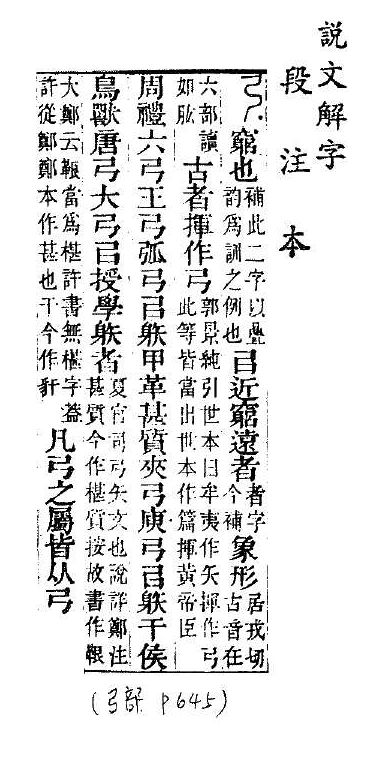 說文解字
段注本
弓窮也補此二字以曡韵爲訓之例也㠯近窮遠者者字今補象形居戎切古音在
六部讀如肱古者揮作弓郭景純引世本曰牟夷作矢揮作弓此等皆當出世本作篇揮黃帝臣
周禮六弓王弓弧弓㠯䠶甲革甚質夾弓庾弓㠯䠶干侯
鳥獸唐弓大弓㠯授學䠶者夏官司弓矢文也說詳鄭注甚質今作椹質按故書作鞎
大鄭云鞎當爲椹許書無椹字葢許從鄭鄭本作甚也干今作豻凡弓之屬皆从弓
(弓部 P645)